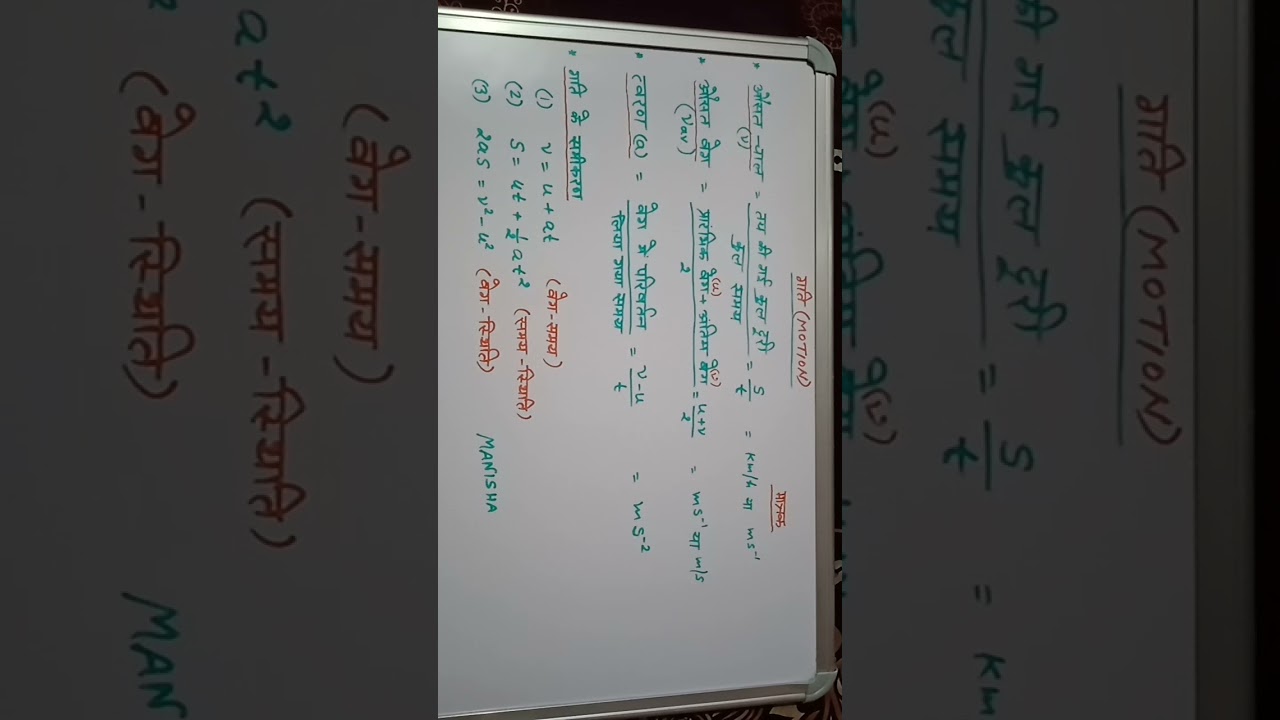 गति (MOTION)
मात्रक
* औसत -चाल (v) = तय की गई कुल दूरी / कुल समय = s / t = km/h या ms⁻¹
* औसत वेग (vav) = प्रारंभिक वेग(u) + अंतिम वेग(v) / 2 = u+v / 2 = ms⁻¹ या m/s
* त्वरण (a) = वेग में परिवर्तन / लिया गया समय = v-u / t = ms⁻²
* गति के समीकरण
(1) v = u + at (वेग-समय)
(2) S = ut + ½ at² (समय-स्थिति)
(3) 2as = v² - u² (वेग-स्थिति)
MANISHA